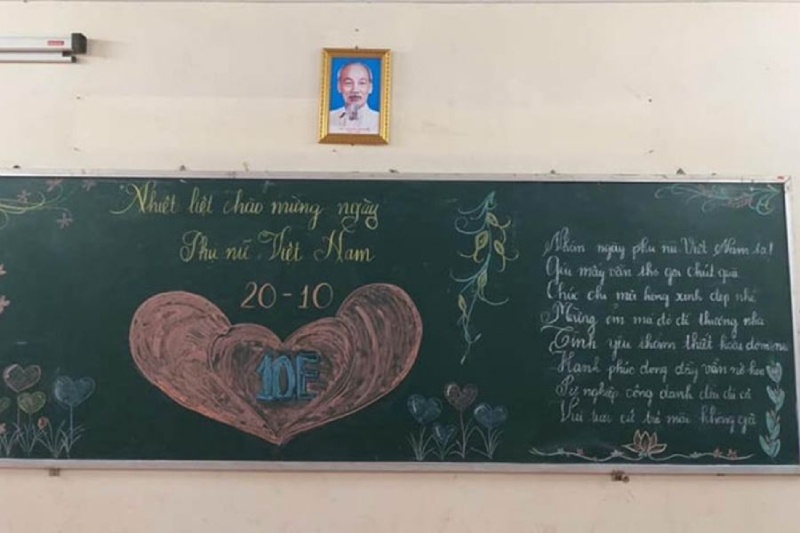 Nhiệt liệt chào mừng ngày
Phụ nữ Việt Nam
20-10
10E
Nhân ngày phụ nữ Việt Nam ta!
Gửi mấy vần thơ gọi chút quà
Chúc chị má hồng xinh đẹp nhé
Mừng em má đỏ dễ thương nha
Tình yêu thắm thiết
Hạnh phúc dong đầy vẫn nở hoa
Sự nghiệp công danh đều đủ cả
Vui tươi cứ trẻ mãi không già